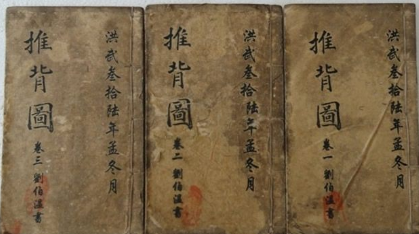 洪武叁拾陆年孟冬月
推背圖
卷一 劉伯溫書
洪武叁拾陆年孟冬月
推背圖
卷二 劉伯溫書
洪武叁拾陆年孟冬月
推背圖
卷三 劉伯溫書